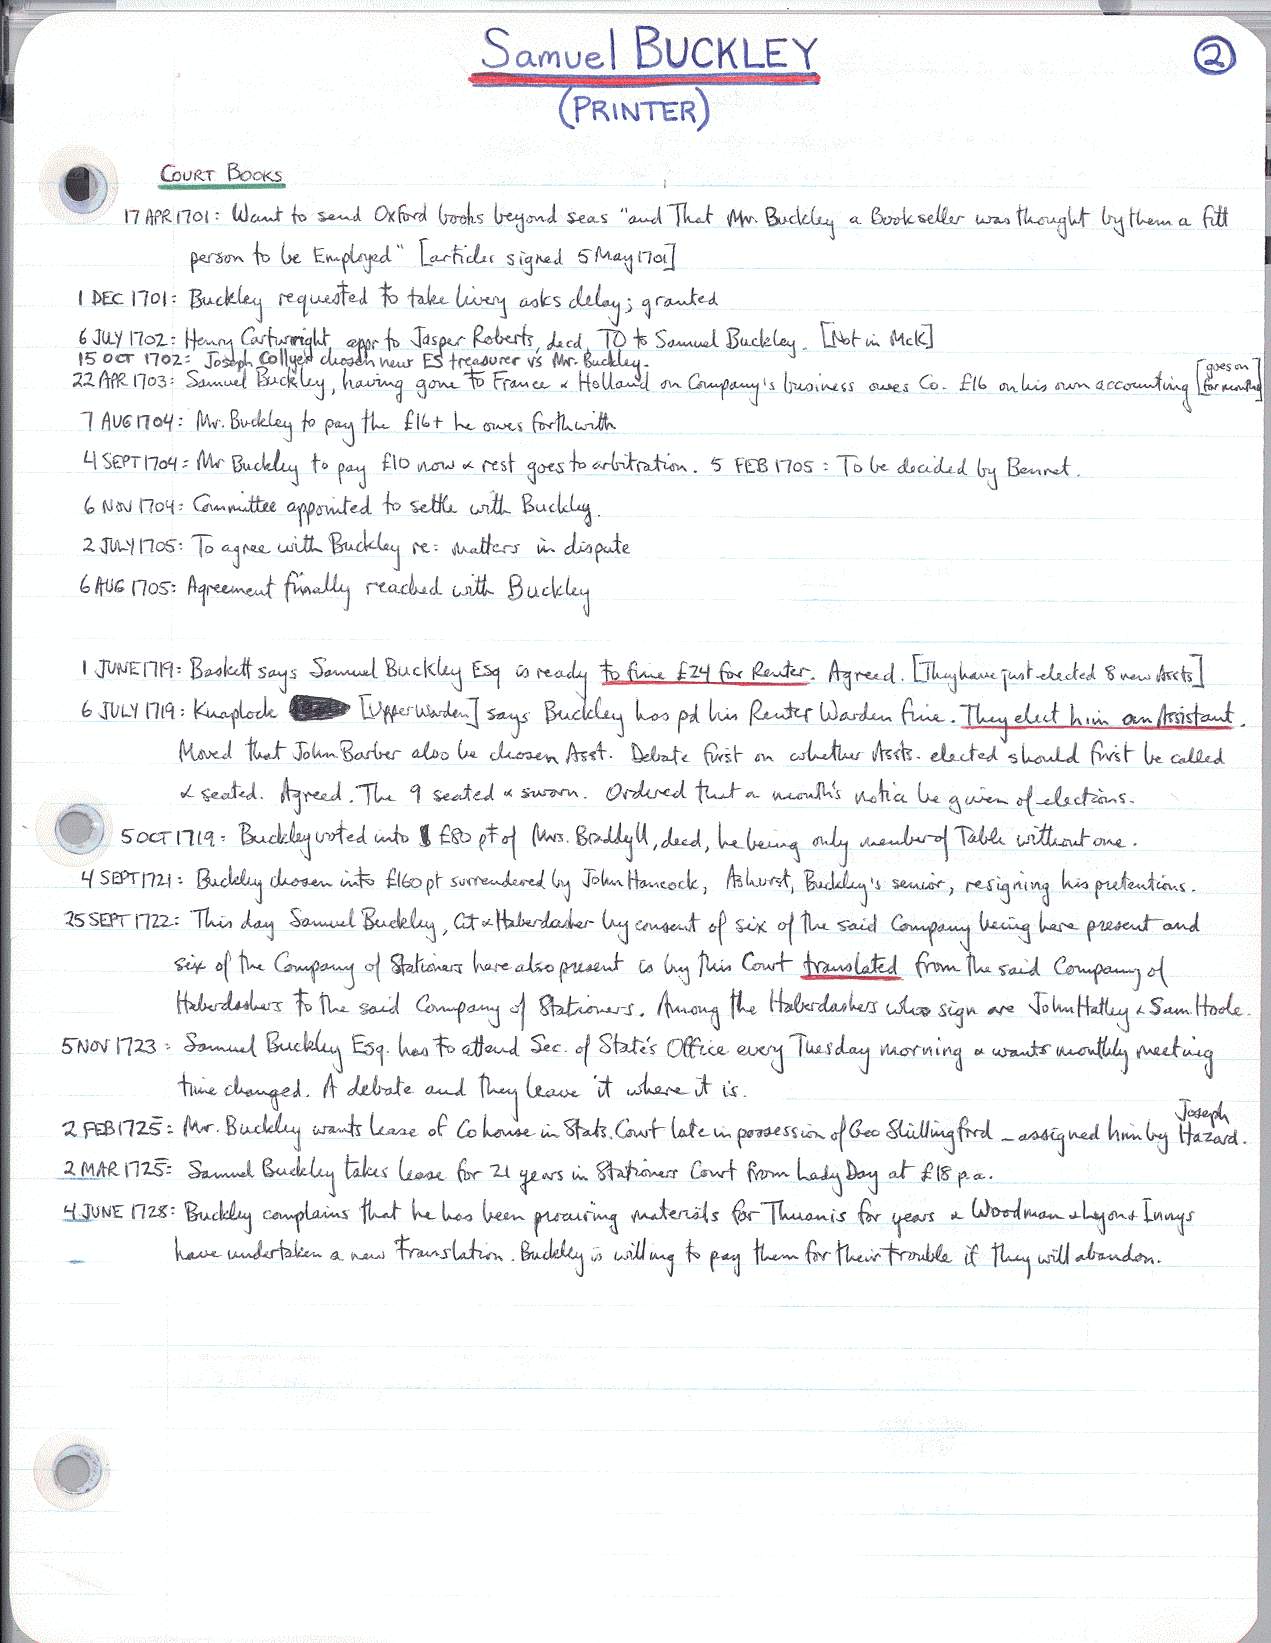 Samuel BUCKLEY
2
(PRINTER)
COURT BOOKS
17 APR 1701: Want to send Oxford books beyond seas "and That Mr. Buckley a Bookseller was thought by them a fitt
person to be Employed" [articles signed 5 May 1701]
1 DEC 1701: Buckley requested to take livery asks delay; granted
6 JULY 1702: Henry Cartwright, appr to Jasper Roberts, decd, TO to Samuel Buckley. [Not in McK]
15 OCT 1702: Joseph Collyer chosen new ES treasurer vs Mr. Buckley.
22 APR 1703: Samuel Buckley, having gone to France & Holland on Company's business owes Co. £16 on his own accounting [goes on
for months]
7 AUG 1704: Mr. Buckley to pay the £16+ he owes forthwith
4 SEPT 1704: Mr Buckley to pay £10 now & rest goes to arbitration. 5 FEB 1705: To be decided by Bennet.
6 NOV 1704: Committee appointed to settle with Buckley.
2 JULY 1705: To agree with Buckley re: matters in dispute
6 AUG 1705: Agreement finally reached with Buckley
1 JUNE 1719: Baskett says Samuel Buckley Esq is ready to fine £24 for Renter. Agreed. [They have just elected 8 new Assts]
6 JULY 1719: Knaplock [Upper Warden] says Buckley has pd his Renter Warden fine. They elect him an Assistant.
Moved that John Barber also be chosen Asst. Debate first on whether Assts. elected should first be called
& seated. Agreed. The 9 seated & sworn. Ordered that a month's notice be given of elections.
5 OCT 1719: Buckley voted into £80 pt of Mrs. Braddyll, decd, he being only member of Table without one.
4 SEPT 1721: Buckley chosen into £160 pt surrendered by John Hancock, Ashurst, Buckley's senior, resigning his pretentions.
25 SEPT 1722: This day Samuel Buckley, Cit & Haberdasher by consent of six of the said Company being here present and
six of the Company of Stationers here also present is by this Court translated from the said Company of
Haberdashers to the said Company of Stationers. Among the Haberdashers who sign are John Hatley & Sam. Hoole.
5 NOV 1723: Samuel Buckley Esq. has to attend Sec. of State's Office every Tuesday morning & wants monthly meeting
time changed. A debate and they leave it where it is.
2 FEB 1725: Mr. Buckley wants lease of Co house in Stats. Court late in possession of Geo Shillingford – assigned him by Joseph Hazard.
2 MAR 1725: Samuel Buckley takes lease for 21 years in Stationers Court from Lady Day at £18 p.a.
4 JUNE 1728: Buckley complains that he has been procuring materials for Thuanis for years & Woodman & Lyon & Innys
have undertaken a new translation. Buckley is willing to pay them for their trouble if they will abandon.